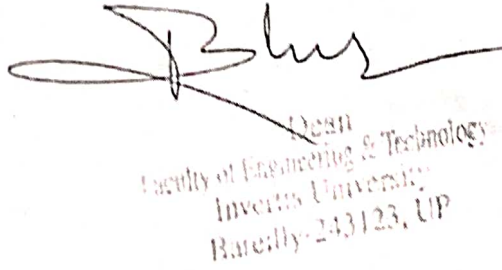 Dean
Faculty of Engineering & Technology
Invertis University
Bareilly-243123, UP